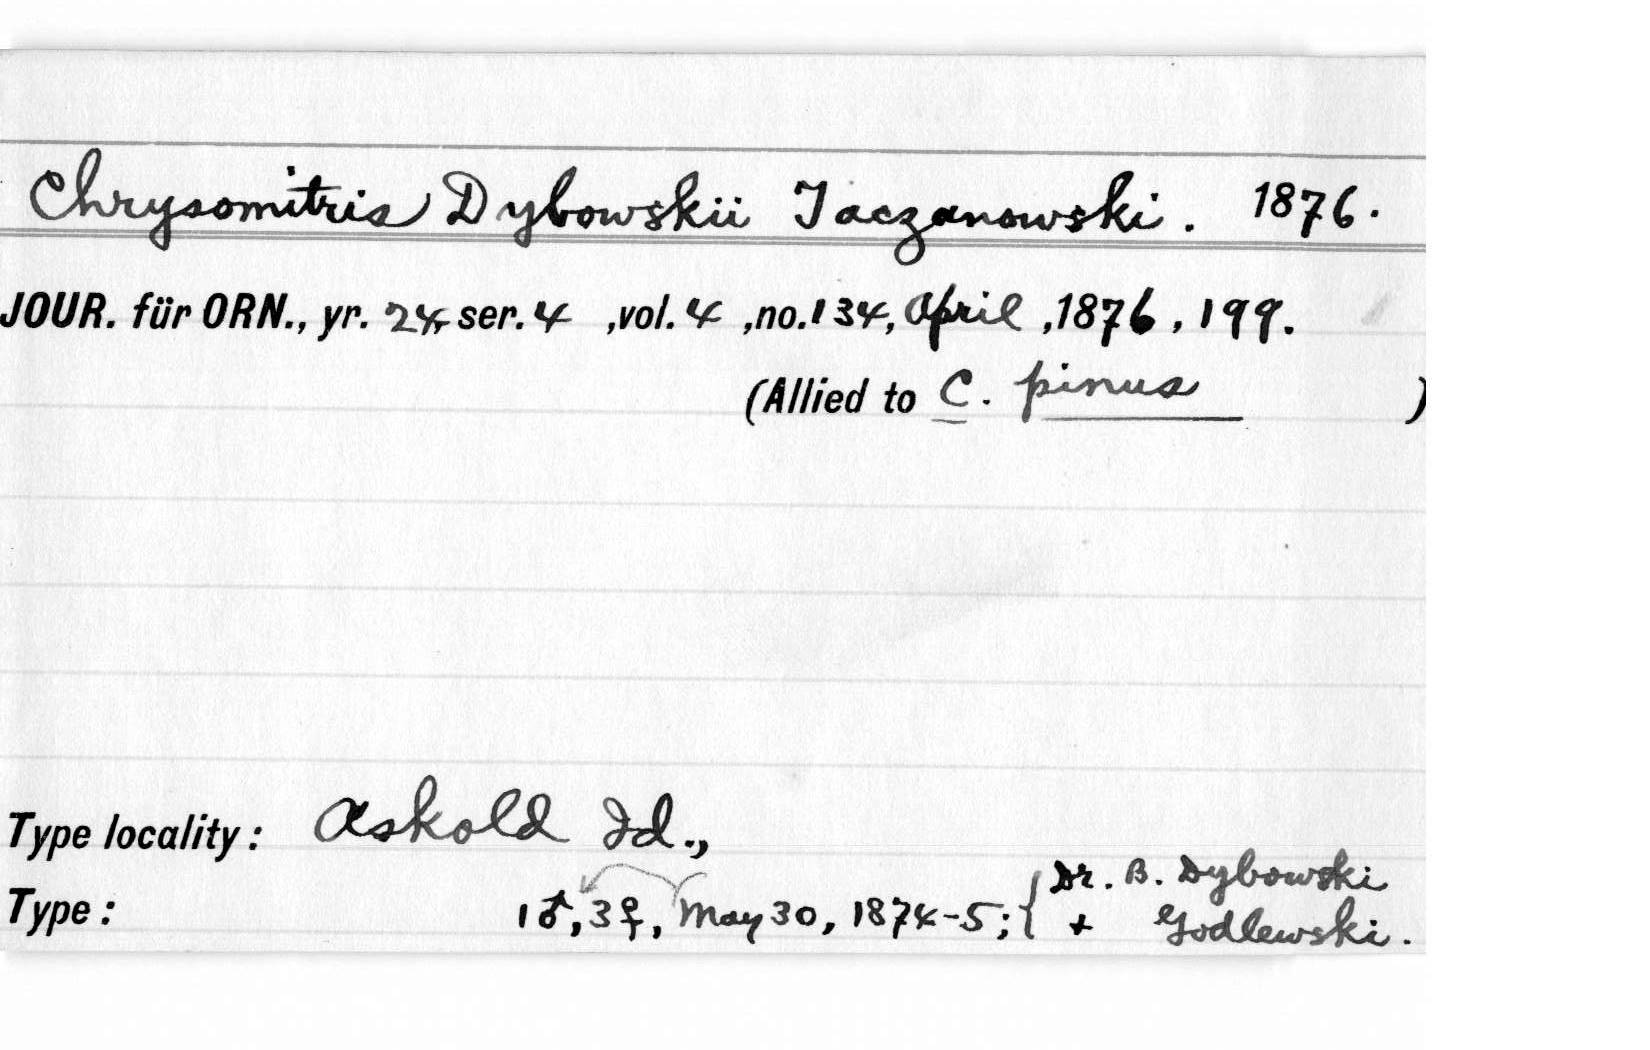 Chrysomitris Dybowskii Taczanowski. 1876.
JOUR. für ORN., yr. 24, ser. 4 ,vol. 4 ,no. 134, April ,1876 , 199.
(Allied to C. pinus )
Type locality: Askold Id.,
Type: 1♂, 3♀, May 30, 1874-5; { Dr. B. Dybowski
+ Godlewski.